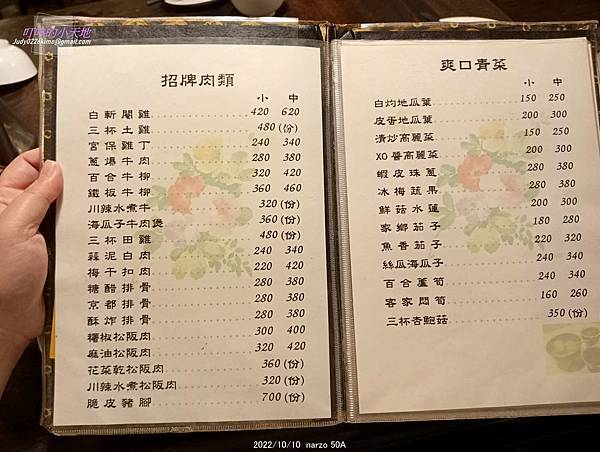 叮噹的小天地
招牌肉類
小 中
白斬閹雞 420 620
三杯土雞 480(份)
宮保雞丁 240 340
蔥爆牛肉 280 380
百合牛柳 320 420
鐵板牛柳 360 460
川辣水煮牛 320(份)
海瓜子牛肉煲 360(份)
三杯田雞 480(份)
蒜泥白肉 240 340
梅干扣肉 220 420
糖醋排骨 280 380
京都排骨 280 380
酥炸排骨 280 380
椒松阪肉 300 400
麻油松阪肉 320 420
花菜乾松阪肉 360(份)
川辣水煮松阪肉 320(份)
脆皮豬腳 700(份)
爽口青菜
小 中
白灼地瓜葉 150 250
皮蛋地瓜葉 200 300
清炒高麗菜 150 250
XO醬高麗菜 200 300
蝦皮珠蔥 280 380
冰梅蔬果 280 380
鮮菇水蓮 200 300
家鄉茄子 180 280
魚香茄子 220 320
絲瓜海瓜子 240 340
百合蘆筍 240 340
客家悶筍 160 260
三杯杏鮑菇 350(份)
2022/10/10 narzo 50A